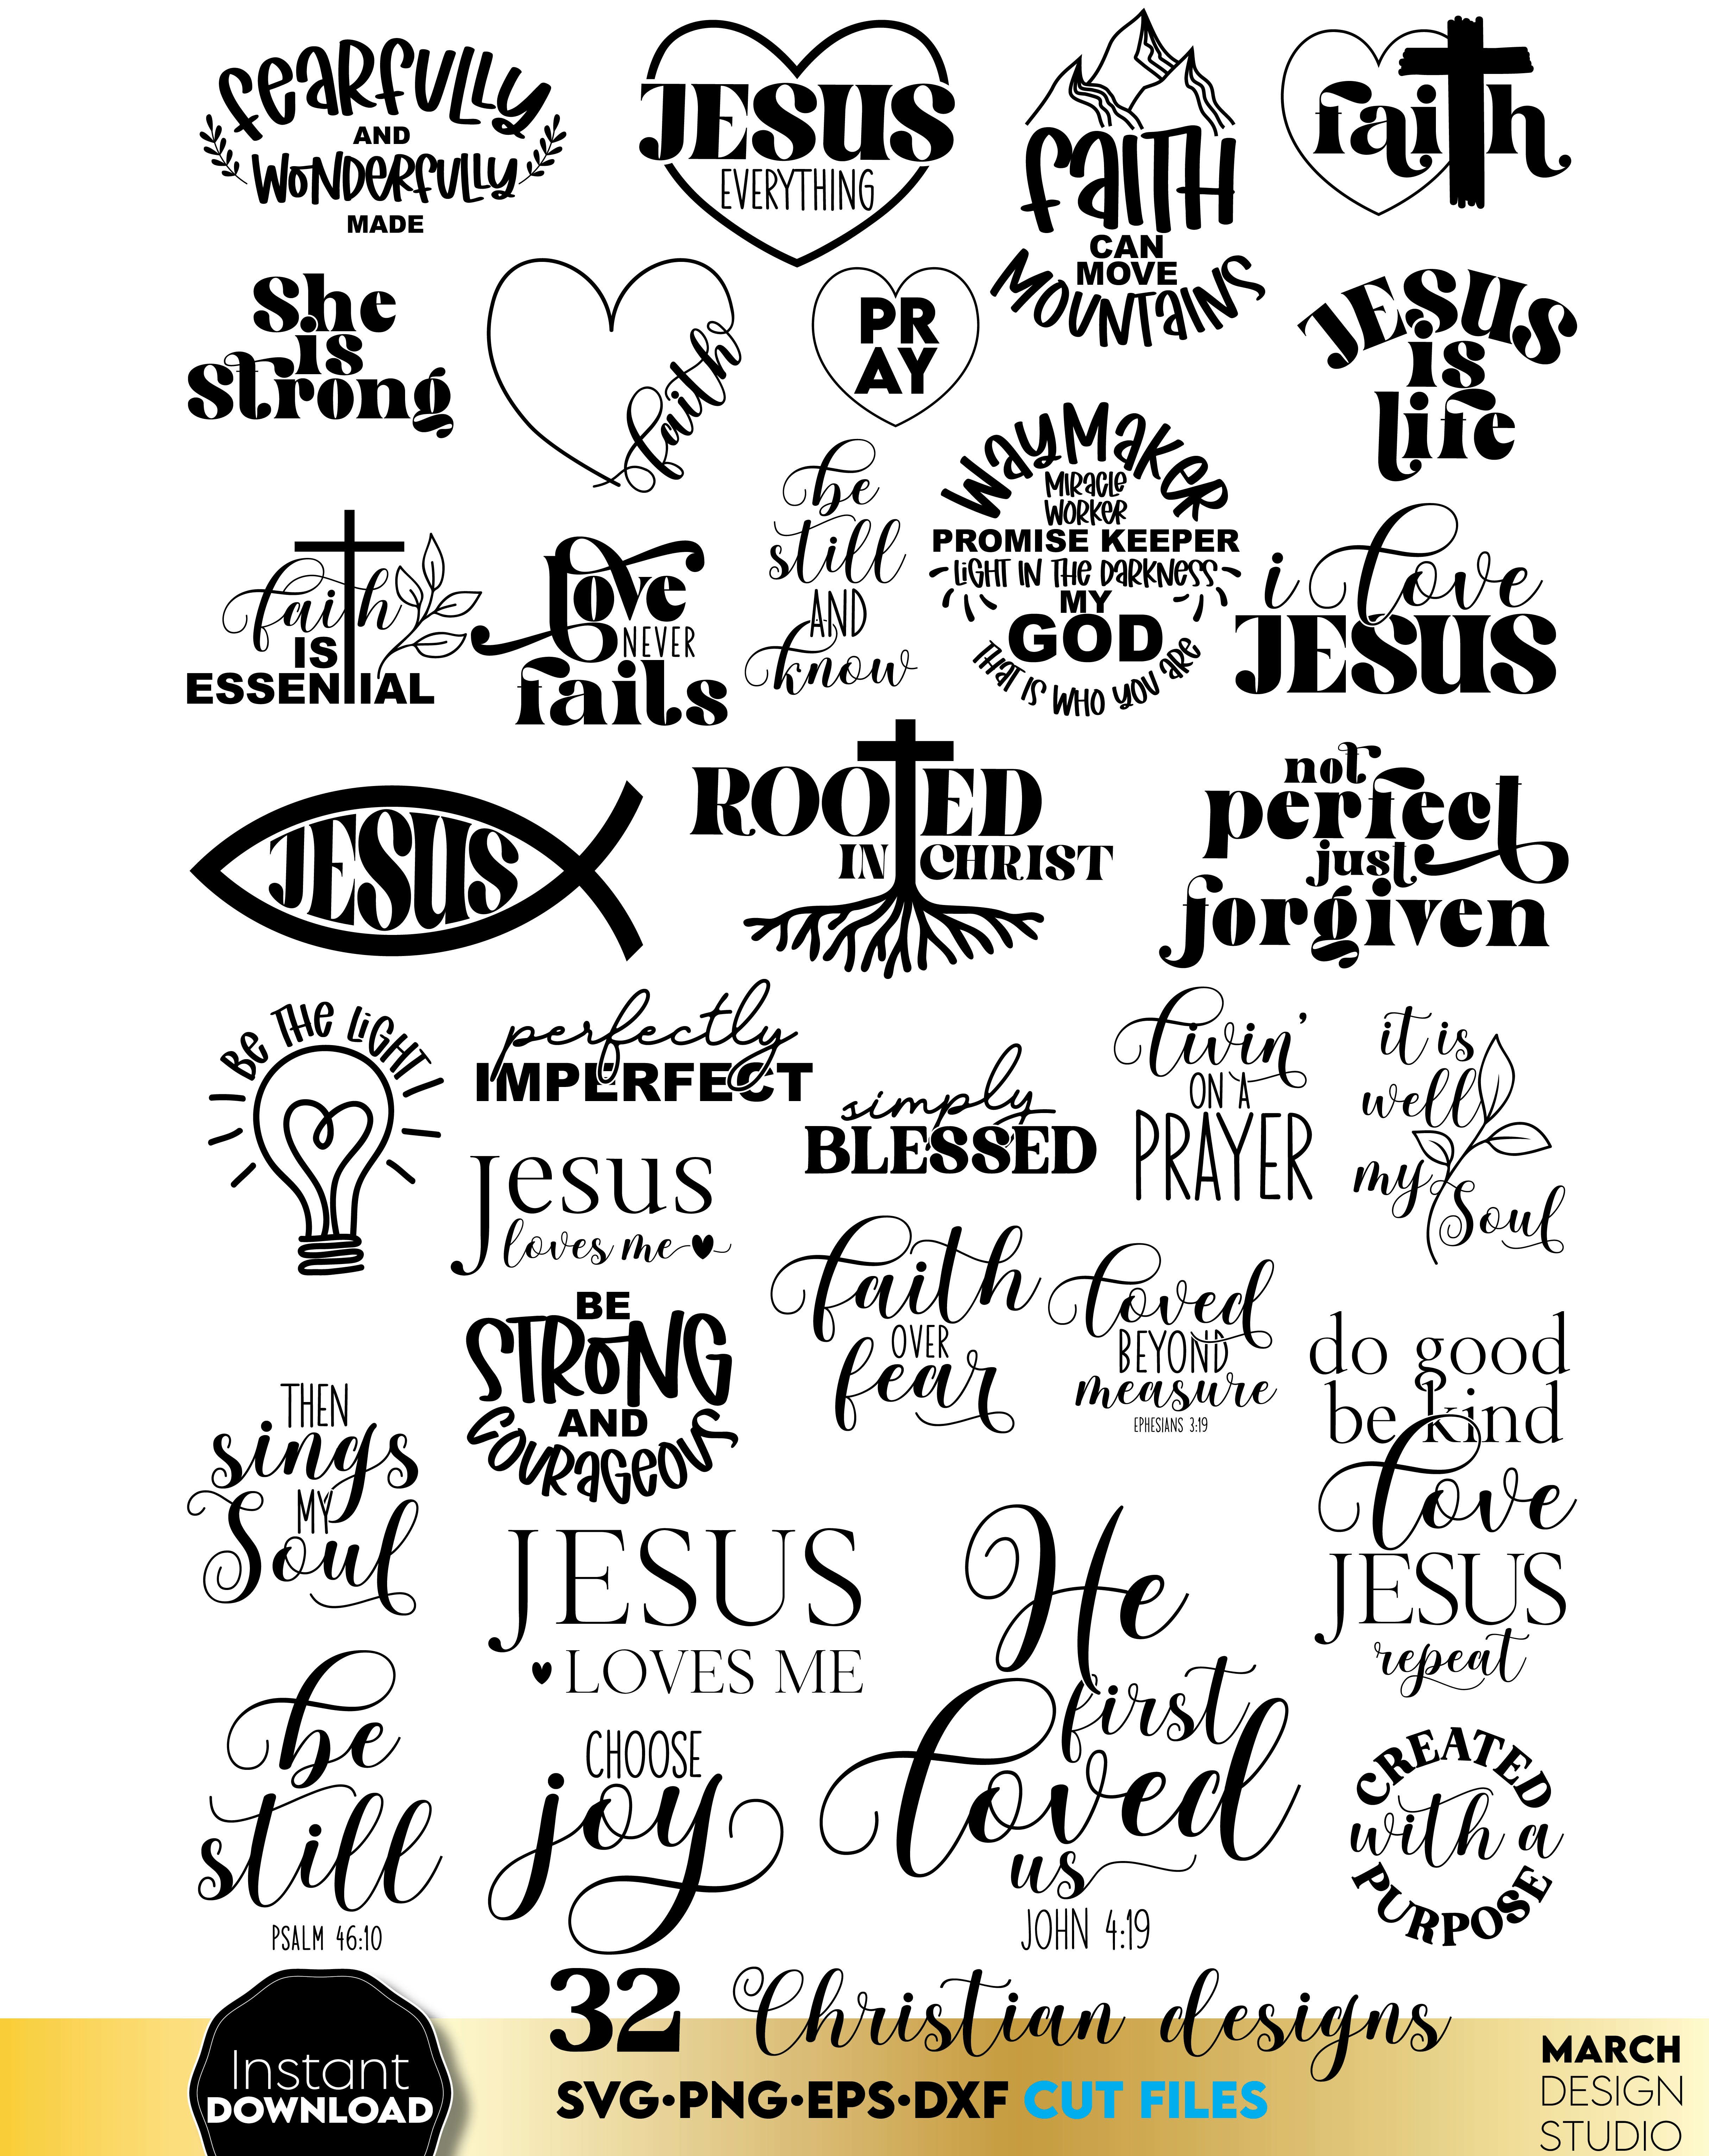 fearfully
AND
WONDERFULLY
MADE
JESUS
EVERYTHING
faith
CAN
MOVE
MOUNTAINS
faith
She
is
Strong
faith
PR
AY
JESUS
is
life
faith
IS
ESSENTIAL
love
NEVER
fails
be
still
AND
know
WAYMAKER
MIRACLE
WORKER
PROMISE KEEPER
LIGHT IN THE DARKNESS
MY
GOD
THAT IS WHO YOU ARE
i love
JESUS
JESUS
ROOTED
IN CHRIST
not
perfect
just
forgiven
BE THE LIGHT
perfectly
IMPERFECT
Jesus
loves me
simply
BLESSED
livin'
ON A
PRAYER
it is
well
my
Soul
THEN
sings
MY
Soul
BE
STRONG
AND
COURAGEOUS
faith
OVER
fear
loved
BEYOND
measure
EPHESIANS 3:19
do good
be kind
love
JESUS
repeat
JESUS
LOVES ME
He
first
loved
us
JOHN 4:19
be
still
PSALM 46:10
CHOOSE
joy
CREATED
with a
PURPOSE
32 Christian designs
SVG•PNG•EPS•DXF CUT FILES
Instant
DOWNLOAD
MARCH
DESIGN
STUDIO